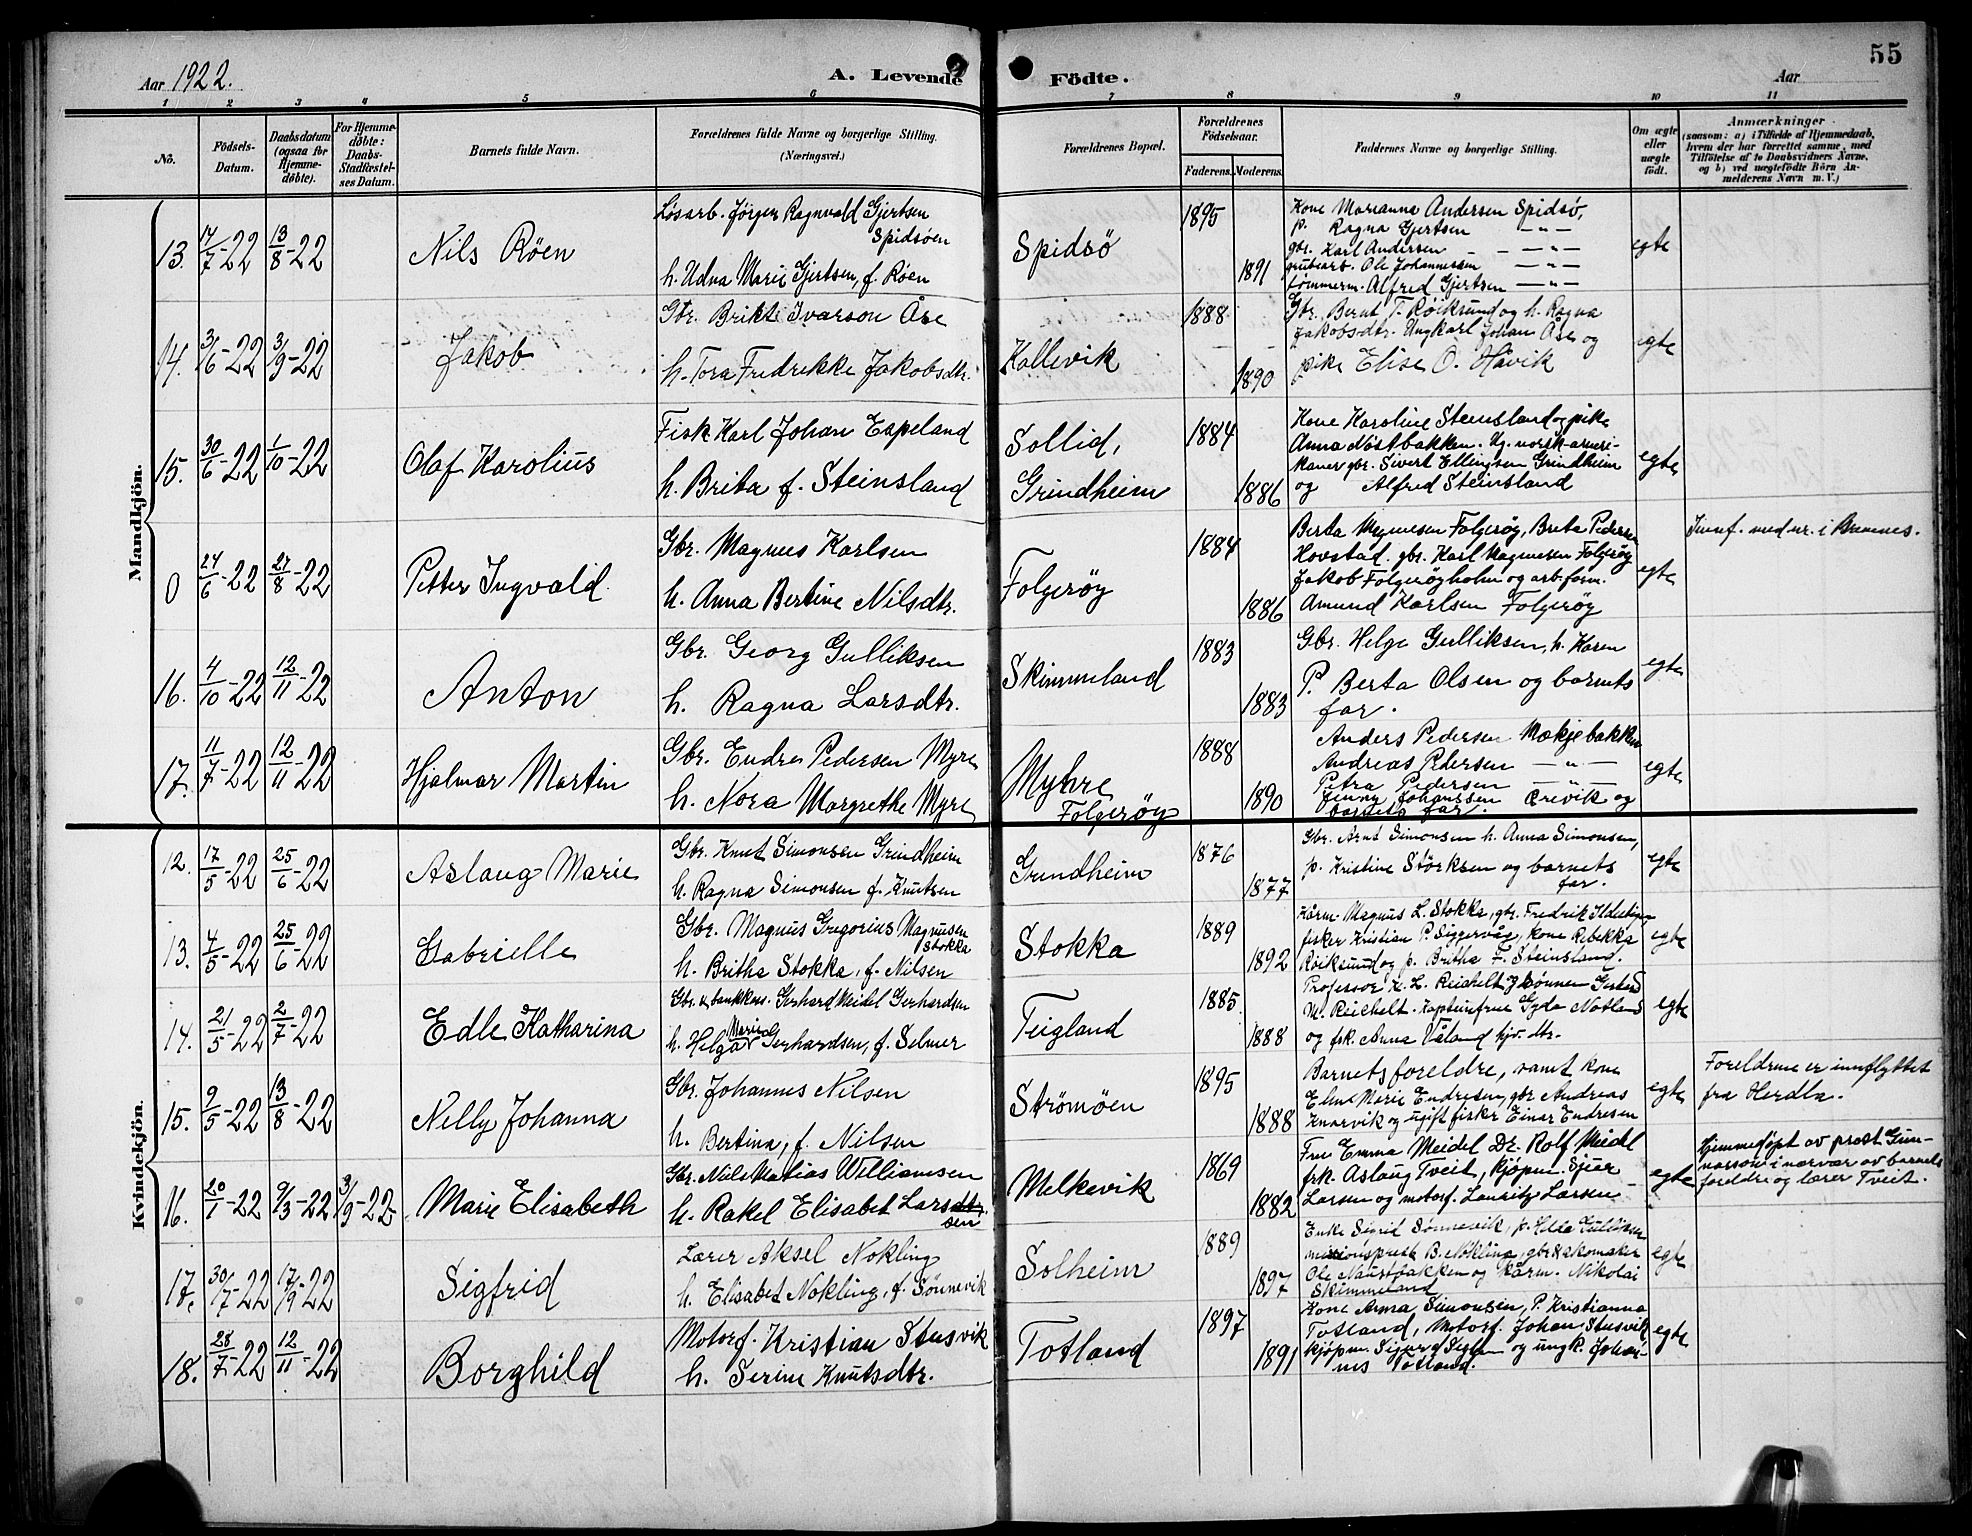 Aar 1922.
A. Levende Födte.
Aar
55
1 2 3 4 5 6 7 8 9 10 11
No.
Födsels-
Datum.
Daabsdatum
(ogsaa for
Hjemme-
døbte).
For Hjemme-
døbte:
Daabs-
Stadfæstel-
ses Datum.
Barnets fulde Navn.
Forældrenes fulde Navne og borgerlige Stilling.
(Næringsvei.)
Forældrenes Bopæl.
Forældrenes
Födselsaar.
Faderens. Moderens.
Faddernes Navne og borgerlige Stilling.
Om ægte
eller
uægte
født.
Anmærkninger
(saasom: a) i Tilfælde af Hjemmedaab,
hvem der har forrettet samme, med
Tilföielse af to Daabsvidners Navne,
og b) ved uægtefödte Börn An-
melderens Navn m. V.)
Mandkjön.
13. 17/7-22 13/8-22 Nils Röen
Løsarb. Jörger Ragnvald Gjertsen
Spidsöen
h. Udna Marie Gjertsen, f. Röen
Spidsö
1895
1891
Kone Marianna Andersen Spidsö,
p. Ragna Gjertsen — " —
gbr. Karl Andersen — " —
grubearb. Ole Johannessen — " —
tömmerm. Alfred Gjertsen — " —
egte
14. 3/6-22 3/9-22 Jakob
Gbr. Brikt Ivarson Åse
h. Tora Fredrikke Jakobsdtr.
Kallevik
1888
1890
Gbr. Bernt T. Röiksund og h. Ragna
Jakobsdtr. Ungkarl Johan Åse og
pike Elise O. Håvik
egte
15. 30/6-22 1/10-22 Olaf Karolius
Fisk. Karl Johan Espeland
h. Brita f. Steinsland
Sollid,
Grindheim
1884
1886
Kone Karoline Steinsland og pike
Anna Nöstbakken. Ug. norsk-ameri-
kaner gbr. Sivert Ellingsen Grindheim
og Alfred Steinsland
egte
0 24/6-22 27/8-22 Petter Ingvald
Gbr. Magnus Karlsen
h. Anna Bertine Nilsdtr.
Folgeröy
1884
1886
Berta Magnesen Folgeröy, Brita Pedersen
Hovstad. gbr. Karl Magnesen Folgeröy
Jakob Folgeröyholm og arb.form.
Amund Karlsen Folgeröy
egte
Innf. med nr. i Bremnes.
16. 4/10-22 12/11-22 Anton
Gbr. Georg Gulliksen
h. Ragna Larsdtr.
Skimmeland
1883
1883
Gbr. Helge Gulliksen, h. Karen
P. Berta Olsen og barnets
far.
egte
17. 11/7-22 12/11-22 Hjalmar Martin
Gbr. Endre Pedersen Myre
h. Nora Margrethe Myre
Myhre
Folgeröy
1888
1890
Anders Pedersen Mækjebakken
Andreas Pedersen — " —
Petra Pedersen — " —
Jenny Johanssen Ørevik og
barnets far.
egte
Kvindekjön.
12. 17/5-22 25/6-22 Aslaug Marie
Gbr. Knut Simonsen Grindheim
h. Ragna Simonsen f. Knutsen
Grindheim
1876
1877
Gbr. Arnt Simonsen h. Anna Simonsen,
p. Kristine Störksen og barnets
far.
egte
13. 4/5-22 25/6-22 Gabrielle
Gbr. Magnus Gregorius Magnusen
Stokka
h. Britha Stokka, f. Nilsen
Stokka
1889
1892
kårm. Magnus L. Stokka, gbr. Fredrik
fisker Kristian P. Siggervåg, kone Rebekka
Röiksund og p. Britha F. Steinsland.
egte
14. 21/5-22 2/7-22 Edle Katharina
Gbr. & bankkas. Gerhard Meidel Gerhardsen
h. Helga Marie Gerhardsen, f. Selmer
Teigland
1885
1888
Professor K. L. Reichelt, og sönnen Gerhard
M. Reichelt. Kapteinfrue Gyda Natland
og frk. Anna Våland hjv. dtr.
egte
15. 9/5-22 13/8-22 Nelly Johanna
Gbr. Johannes Nilsen
h. Bertina, f. Nilsen
Strömöen
1895
1888
Barnets foreldre, samt kone
Eline Marie Endresen, gbr. Andreas
Knarvik og ugift fisker Einar Endresen
egte
Foreldrene er innflyttet
fra Herdla.
16. 20/1-22 9/3-22 3/9-22 Marie Elisabeth
Gbr. Nils Matias Williamsen
h. Rakel Elisabet Larsdtr.
sen
Melkevik
1869
1882
Fru Emma Meidel Dr. Rolf Meidel
frk. Aslaug Tveit, kjöpm. Sjur
Larsen og motorf. Lauritz Larsen
egte
Hjemmedöpt av prost Gun-
narson i nærvær av barnets
foreldre og lærer Tveit.
17. 30/7-22 17/9-22 Sigfrid
Lærer Aksel Nokling
h. Elisabet Nokling, f. Sönnevik
Solheim
1889
1897
Enke Sigrid Sönnevik, p. Helga Gulliksen
missionsprest B. Nökling, gbr & skomaker
Ole Naustbakken og kårm. Nikolai
Skimmeland
egte
18. 28/7-22 12/11-22 Borghild
Motorf. Kristian Stusvik
h. Serine Knutsdtr.
Totland
1897
1891
Kone Anna Simonsen, P. Kristianna
Totland, Motorf. Johan Stusvik
kjöpm. Sigurd og ungk. Johan-
nes Totland.
egte